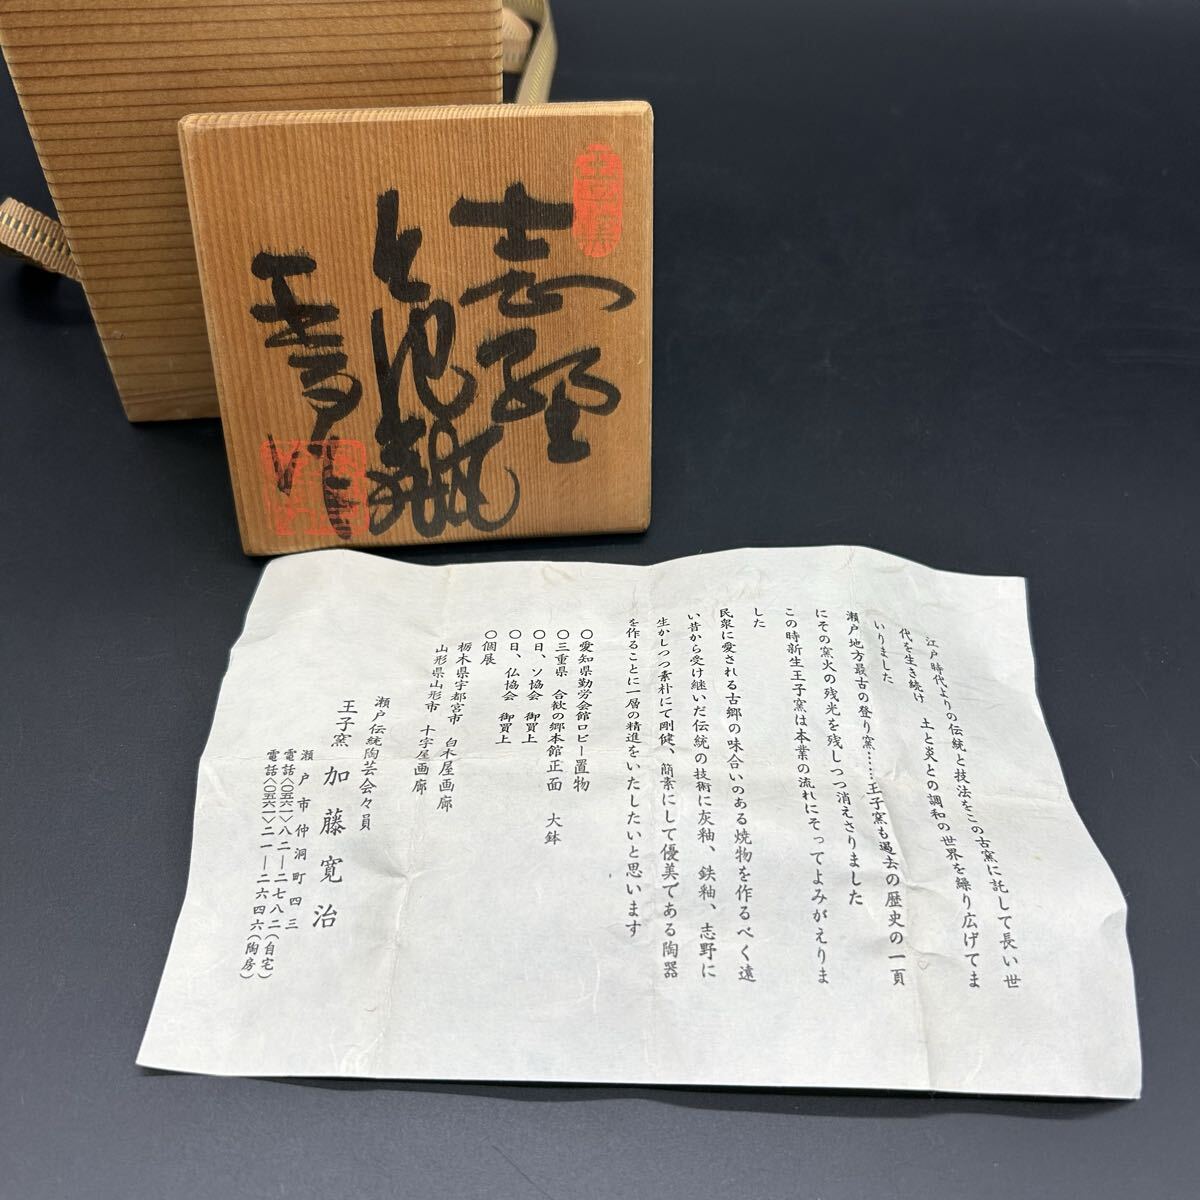 志野
王子窯
江戸時代よりの伝統と技法をこの古窯に託して長い世
代を生き続け　土と炎との調和の世界を繰り広げてま
いりました
瀬戸地方最古の登り窯……王子窯も過去の歴史の一頁
にその窯火の残光を残しつつ消えさりました
この時新生王子窯は本業の流れにそってよみがえりま
した
民衆に愛される古郷の味合いのある焼物を作るべく遠
い昔から受け継いだ伝統の技術に灰釉、鉄釉、志野に
生かしつつ素朴にて剛健、簡素にして優美である陶器
を作ることに一層の精進をいたしたいと思います
〇愛知県勤労会館ロビー置物
〇三重県　合歓の郷本館正面　大鉢
〇日、ソ協会　御買上
〇日、仏協会　御買上
〇個展
栃木県宇都宮市　白木屋画廊
山形県山形市　十字屋画廊
瀬戸伝統陶芸会々員
王子窯　加藤寛治
瀬戸市仲洞町四三
電話〈〇五六一〉八二―二七八二（自宅）
電話〈〇五六一〉二一―二六四六（陶房）